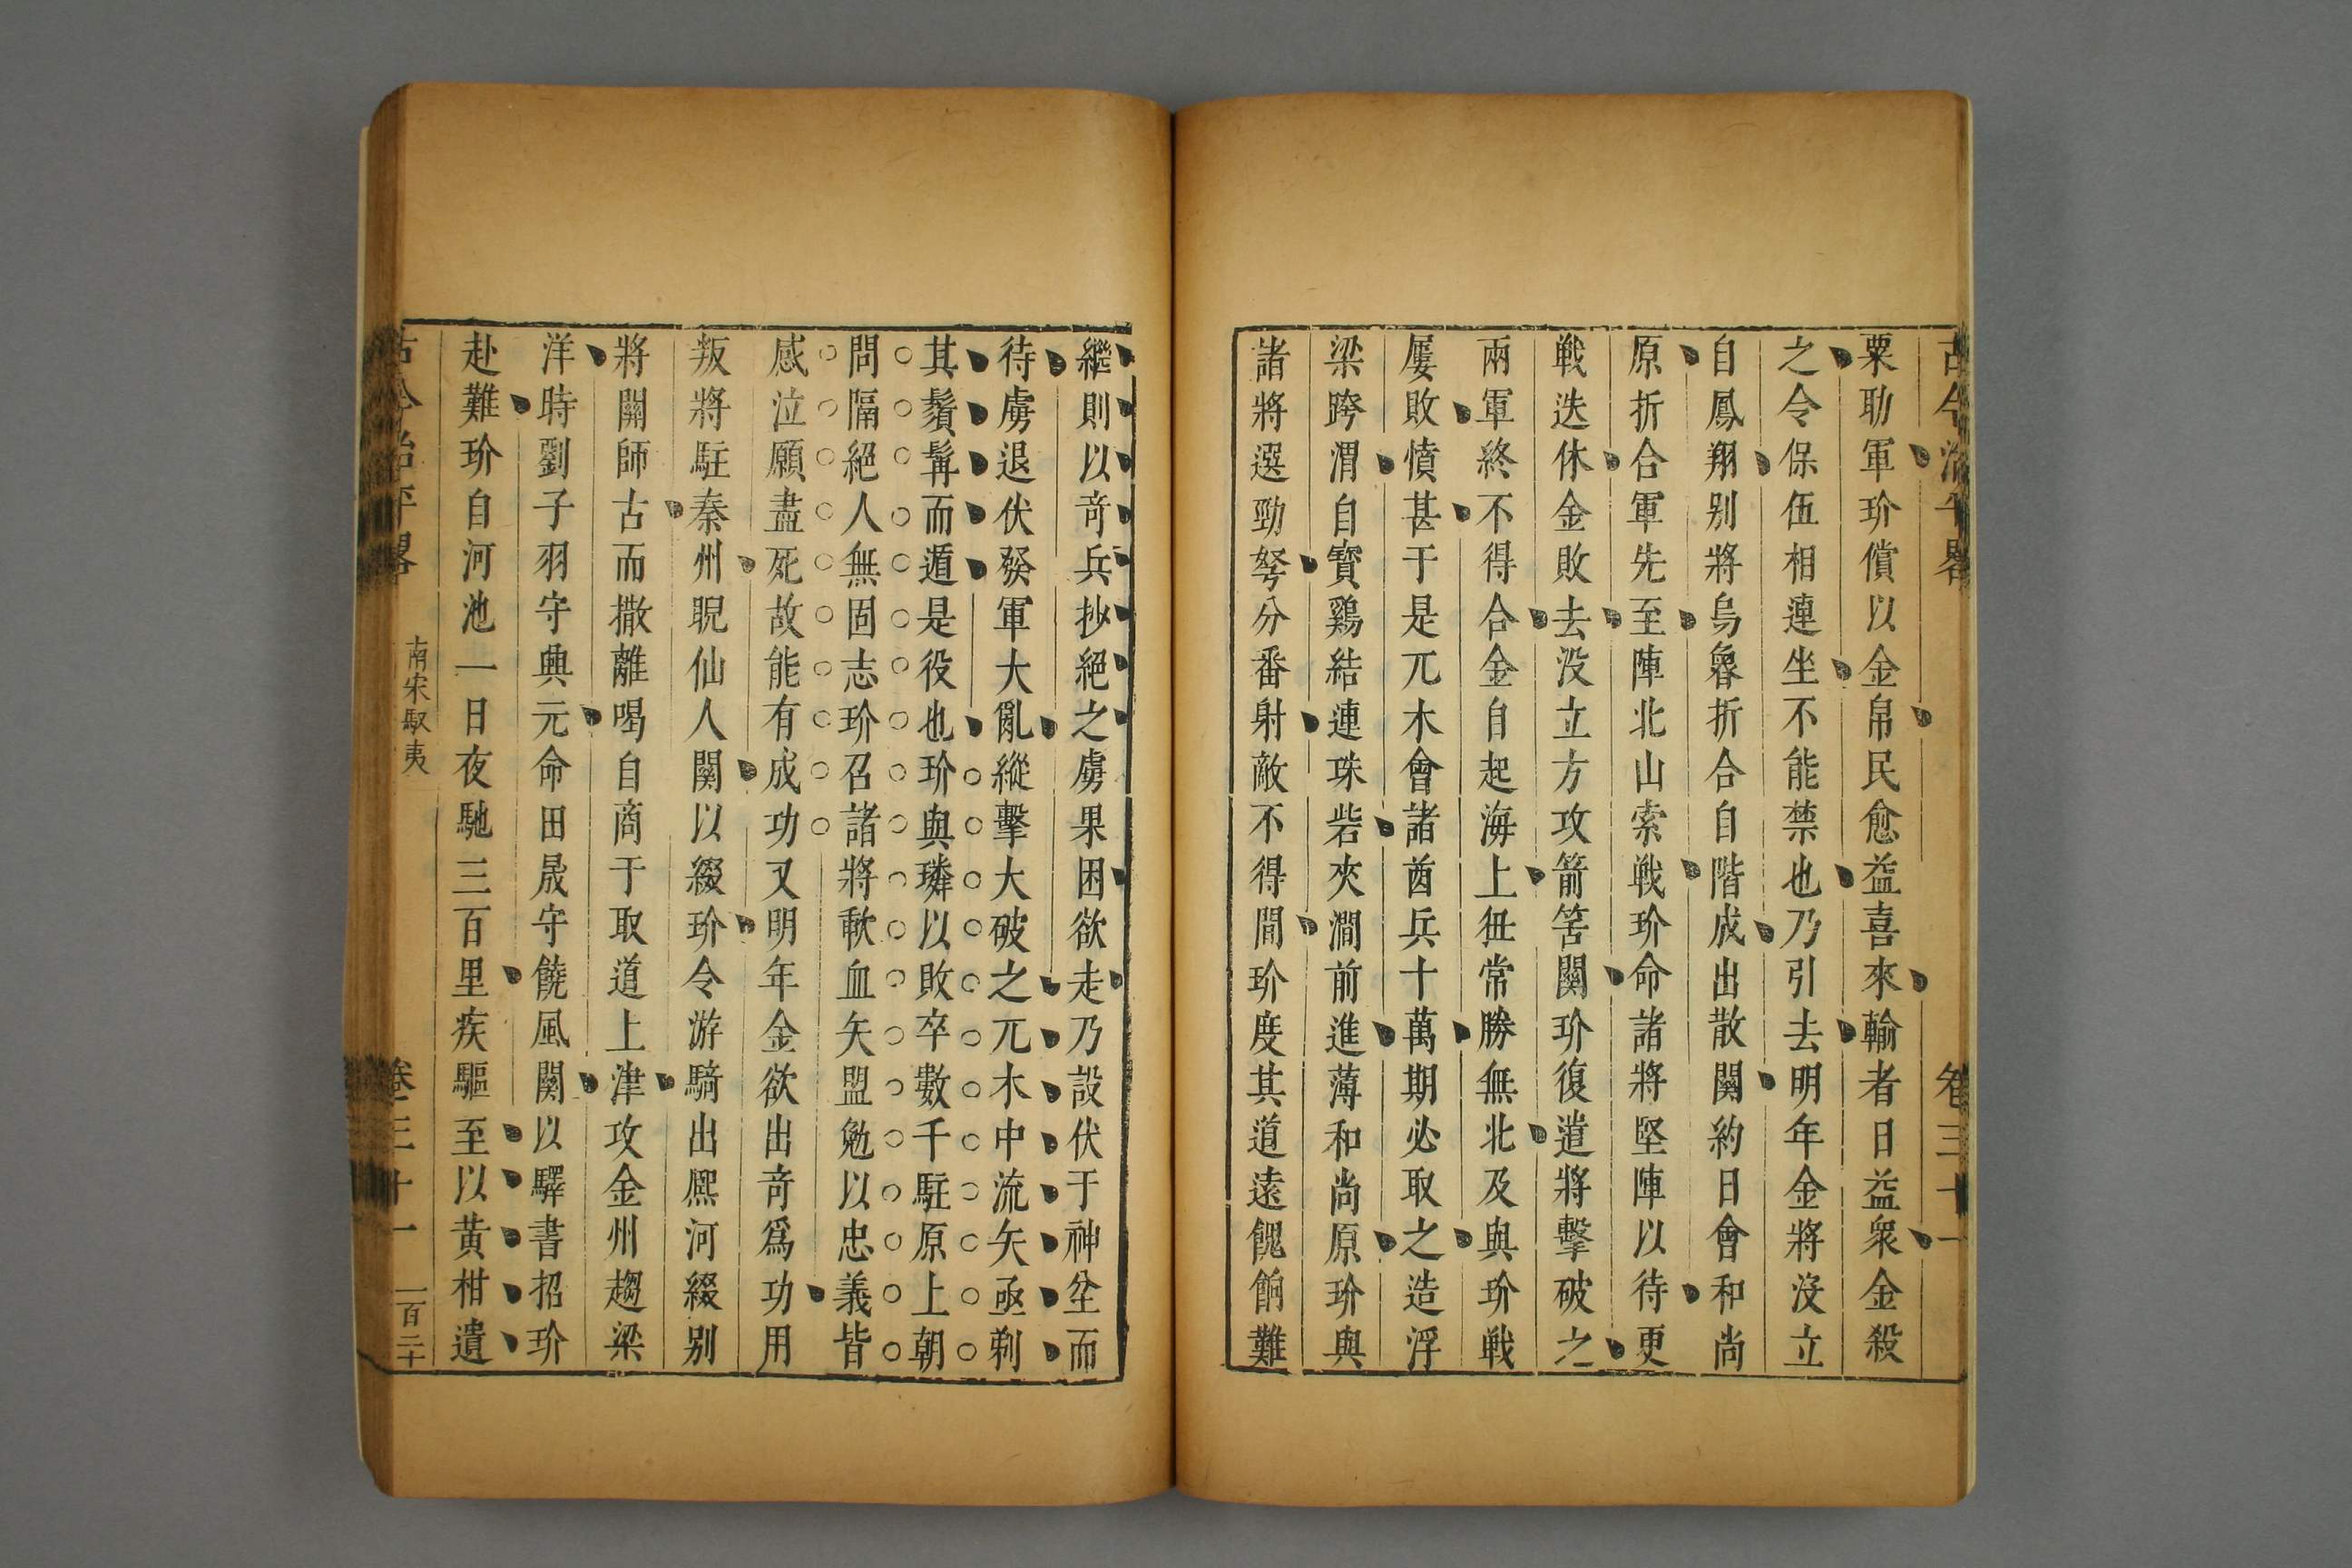 粟助軍玠償以金帛民愈益喜來輸者日益衆金殺
之令保伍相連坐不能禁也乃引去明年金將沒立
自鳳翔别將烏魯折合自階成出散關約日會和尚
原折合軍先至陣北山索戰玠命諸將堅陣以待更
戰迭休金敗去沒立方攻箭筈關玠復遣將擊破之
兩軍終不得合金自起海上狃常勝無北及與玠戰
屢敗憤甚于是兀术會諸酋兵十萬期必取之造浮
梁跨渭自寳鷄結連珠砦夾澗前進薄和尚原玠與
諸將選勁弩分番射敵不得間玠度其道遠餽餉難
繼則以竒兵抄絕之虜果困欲走乃設伏于神坌而
待虜退伏發軍大亂縱擊大破之兀术中流矢亟剃
其鬚髯而遁是役也玠與璘以敗卒數千駐原上朝
問隔絕人無固志玠召諸將歃血矢盟勉以忠義皆
感泣願盡死故能有成功又明年金欲出竒爲功用
叛將駐秦州睨仙人關以綴玠令游騎出熈河綴别
將關師古而撒離喝自商于取道上津攻金州趨梁
洋時劉子羽守興元命田晟守饒風關以驛書招玠
赴難玠自河池一日夜馳三百里疾驅至以黄柑遺
南宋馭夷
卷三十一
一百二十